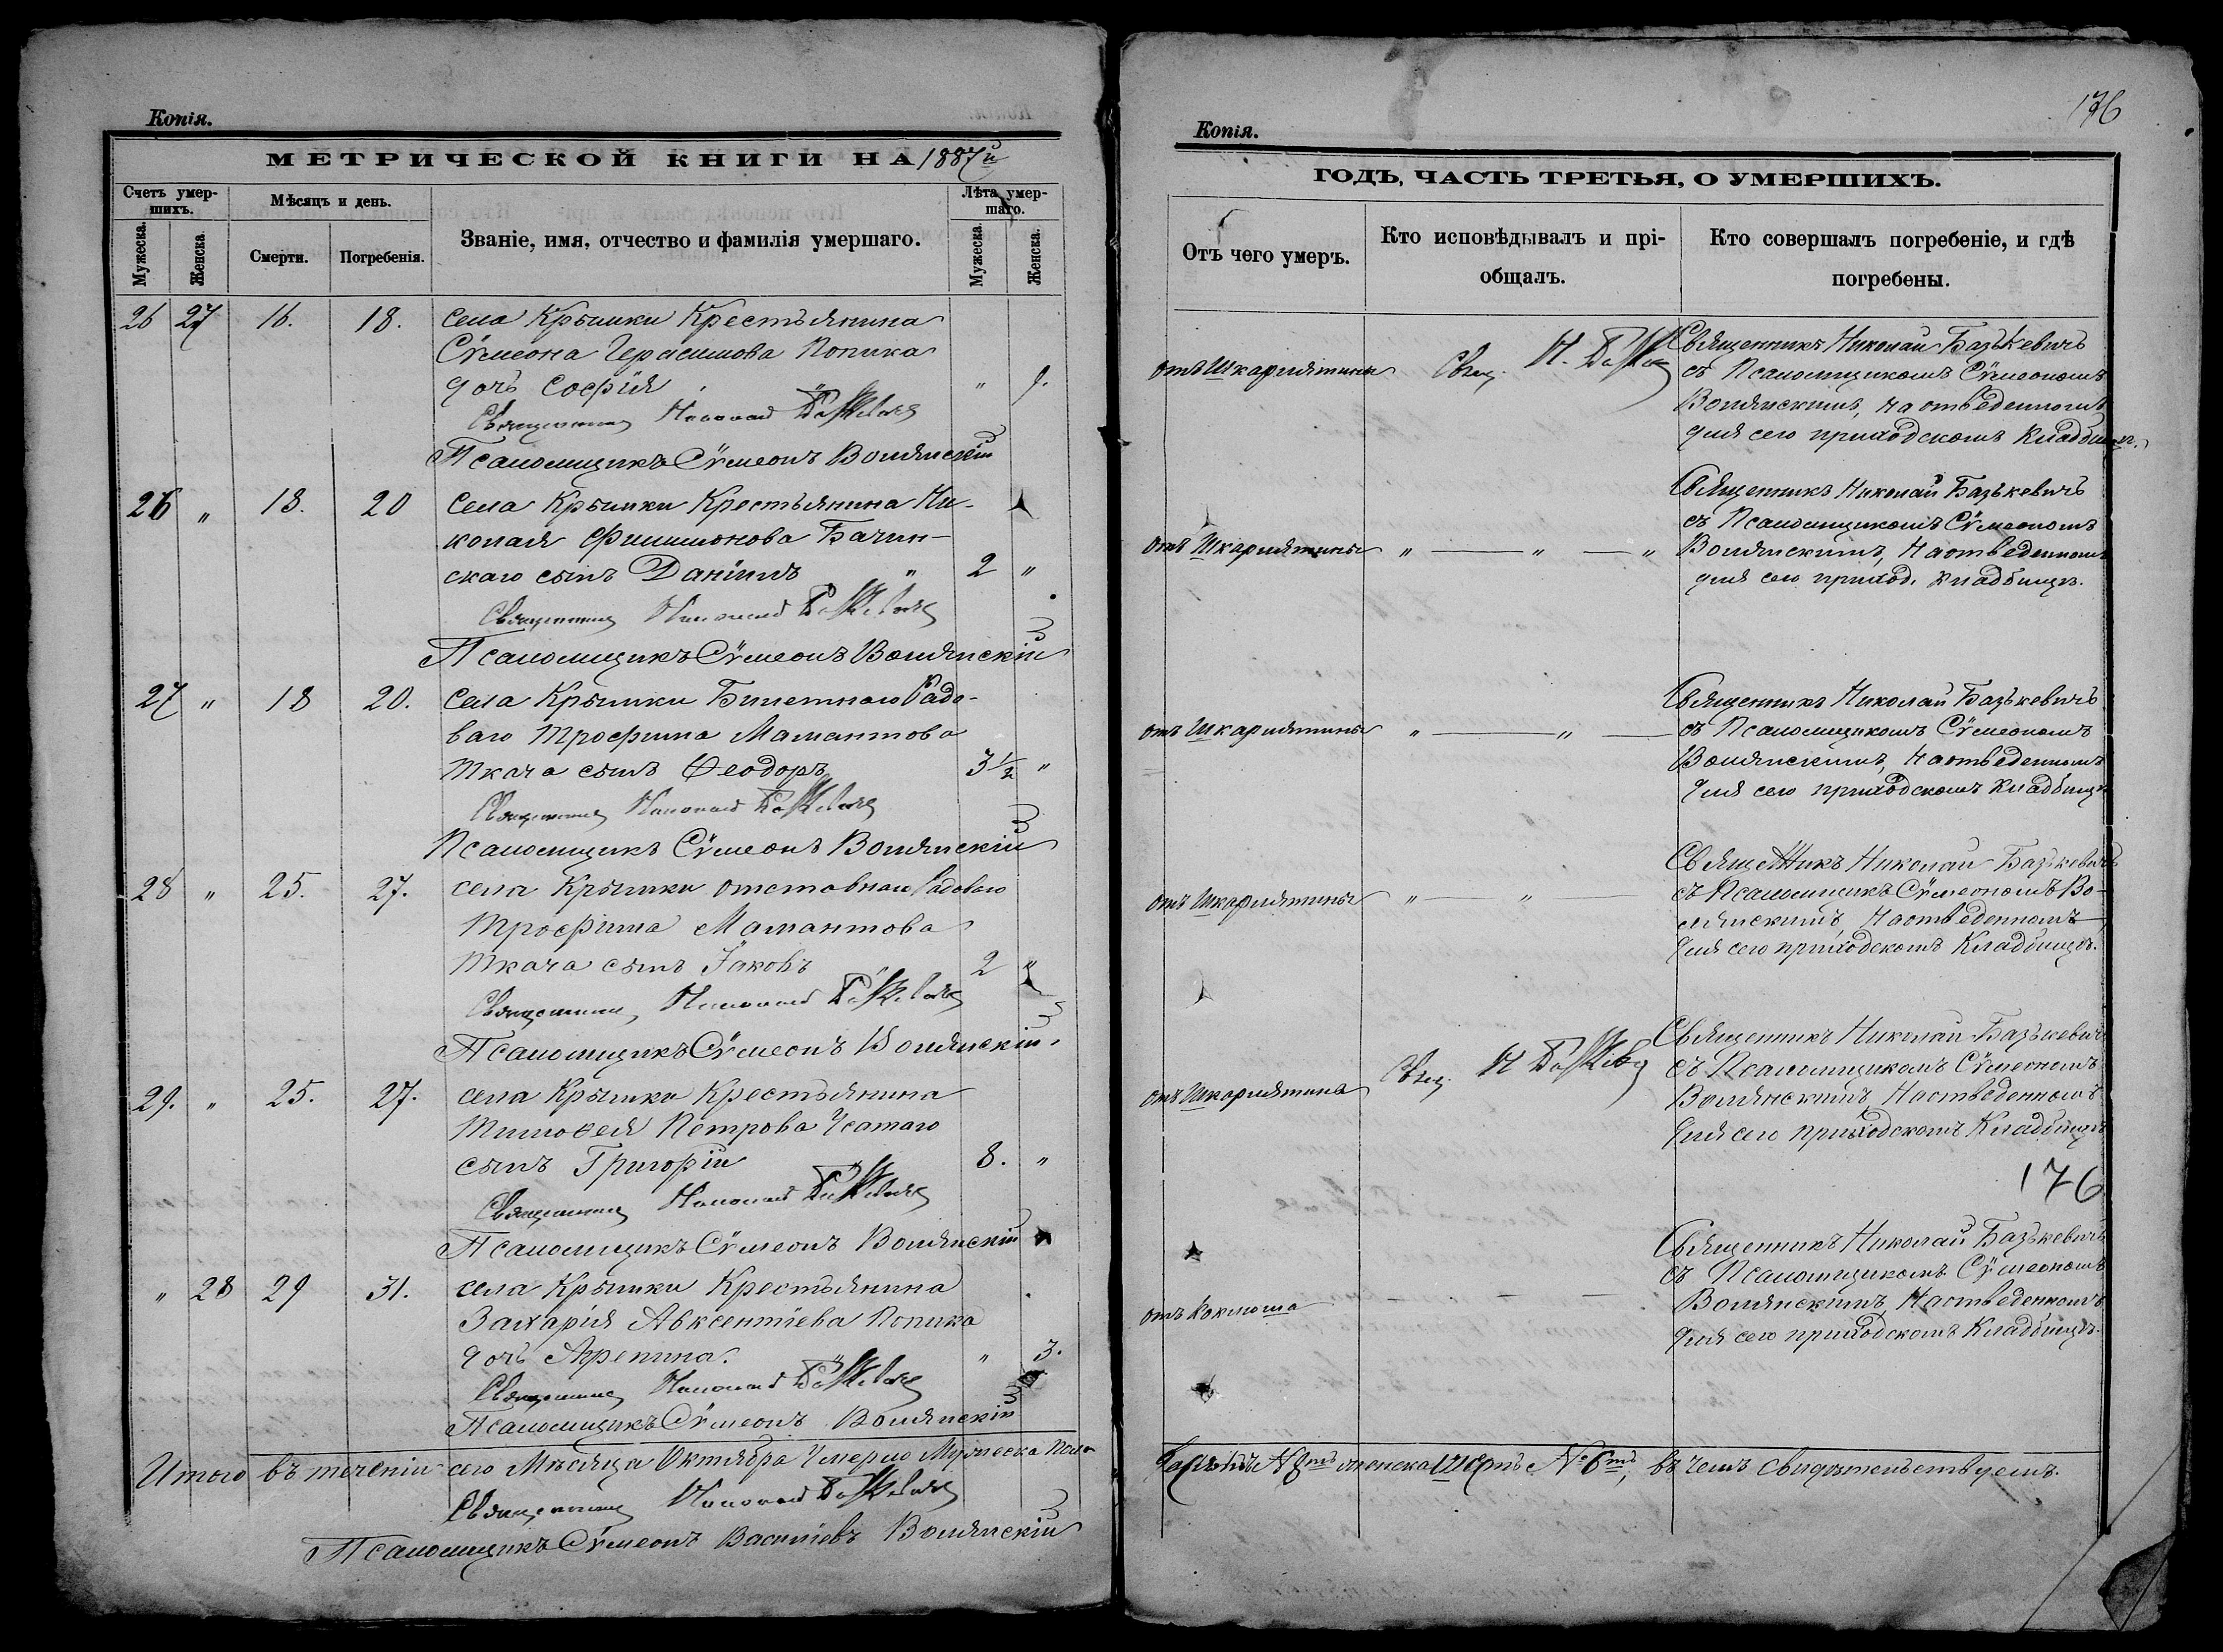 Копія.
МЕТРИЧЕСКОЙ КНИГИ НА 1887й
Счетъ умершихъ.
Мѣсяцъ и день.
Званіе, имя, отчество и фамилія умершаго.
Лѣта умершаго.
Мужеска.
Женска.
Смерти.
Погребенія.
Мужеска.
Женска.
26 27 16. 18. села Крымки Крестьянина
Сѵмеона Герасимова Попика
дочь Софія " 9.
Священникъ Николай Базкевичъ
Псаломщикъ Сѵмеонъ Волянскій
26 " 18. 20 села Крымки Крестьянина Ни-
колая Филимонова Бачин-
скаго сынъ Даніилъ " 2 "
Священникъ Николай Базкевичъ
Псаломщикъ Сѵмеонъ Волянскій
27 " 18 20. села Крымки Билетнаго Рядо-
ваго Трофима Мамантова
Ткача сынъ Ѳеодоръ 3 1/2 "
Священникъ Николай Базкевичъ
Псаломщикъ Сѵмеонъ Волянскій
28 " 25. 27. села Крымки отставнаго Рядоваго
Трофима Мамантова
Ткача сынъ Іаковъ 2 "
Священникъ Николай Базкевичъ
Псаломщикъ Сѵмеонъ Волянскій.
29. " 25. 27. села Крымки Крестьянина
Тимоѳея Петрова
сынъ Григорій 8. "
Священникъ Николай Базкевичъ
Псаломщикъ Сѵмеонъ Волянскій
" 28 29 31. села Крымки Крестьянина
Захарія Авксентіева Попика
дочь Агрепина. " 3.
Священникъ Николай Базкевичъ
Псаломщикъ Сѵмеонъ Волянскій
Итого въ теченіи сего Мѣсяца Октября Умерло Мужеска Пола
Священникъ Николай Базкевичъ
Псаломщикъ Сѵмеонъ Василіевъ Волянскій
176
Копія.
ГОДЪ, ЧАСТЬ ТРЕТЬЯ, О УМЕРШИХЪ.
Отъ чего умеръ.
Кто исповѣдывалъ и прі-
общалъ.
Кто совершалъ погребеніе, и гдѣ
погребены.
отъ Шкарлятины Свящ. Н. Базкев
Священникъ Николай Базькевичъ
съ Псаломщикомъ Сѵмеономъ
Волянскимъ, на отведенномъ
для сего приходскомъ Кладбищѣ.
отъ Шкарлятины " — " — "
Священникъ Николай Базькевичъ
съ Псаломщикомъ Сѵмеономъ
Волянскимъ, На отведенномъ
для сего приход. кладбищѣ.
отъ Шкарлятины " — " —
Священникъ Николай Базькевичъ
съ Псаломщикомъ Сѵмеономъ
Волянскимъ, На отведенномъ
для сего приходскомъ Кладбищѣ
отъ Шкарлятины " — " —
Священникъ Николай Базькевичъ
съ Псаломщикъ Сѵмеономъ Во-
лянскимъ, На отведенномъ
для сего приходскомъ Кладбищѣ.
отъ Шкарлятина Свящ. Н Базкев
Священникъ Николай Базькевичъ
съ Псаломщикомъ Сѵмеономъ
Волянскимъ На отведенномъ
для сего приходскомъ Кладбищѣ
176
отъ Коклюша
Священникъ Николай Базькевичъ
съ Псаломщикомъ Сѵмеономъ
Волянскимъ, На отведенномъ
для сего приходскомъ Кладбищѣ.
женска Шесть № 6ть, въ чемъ свидѣтельствуемъ.